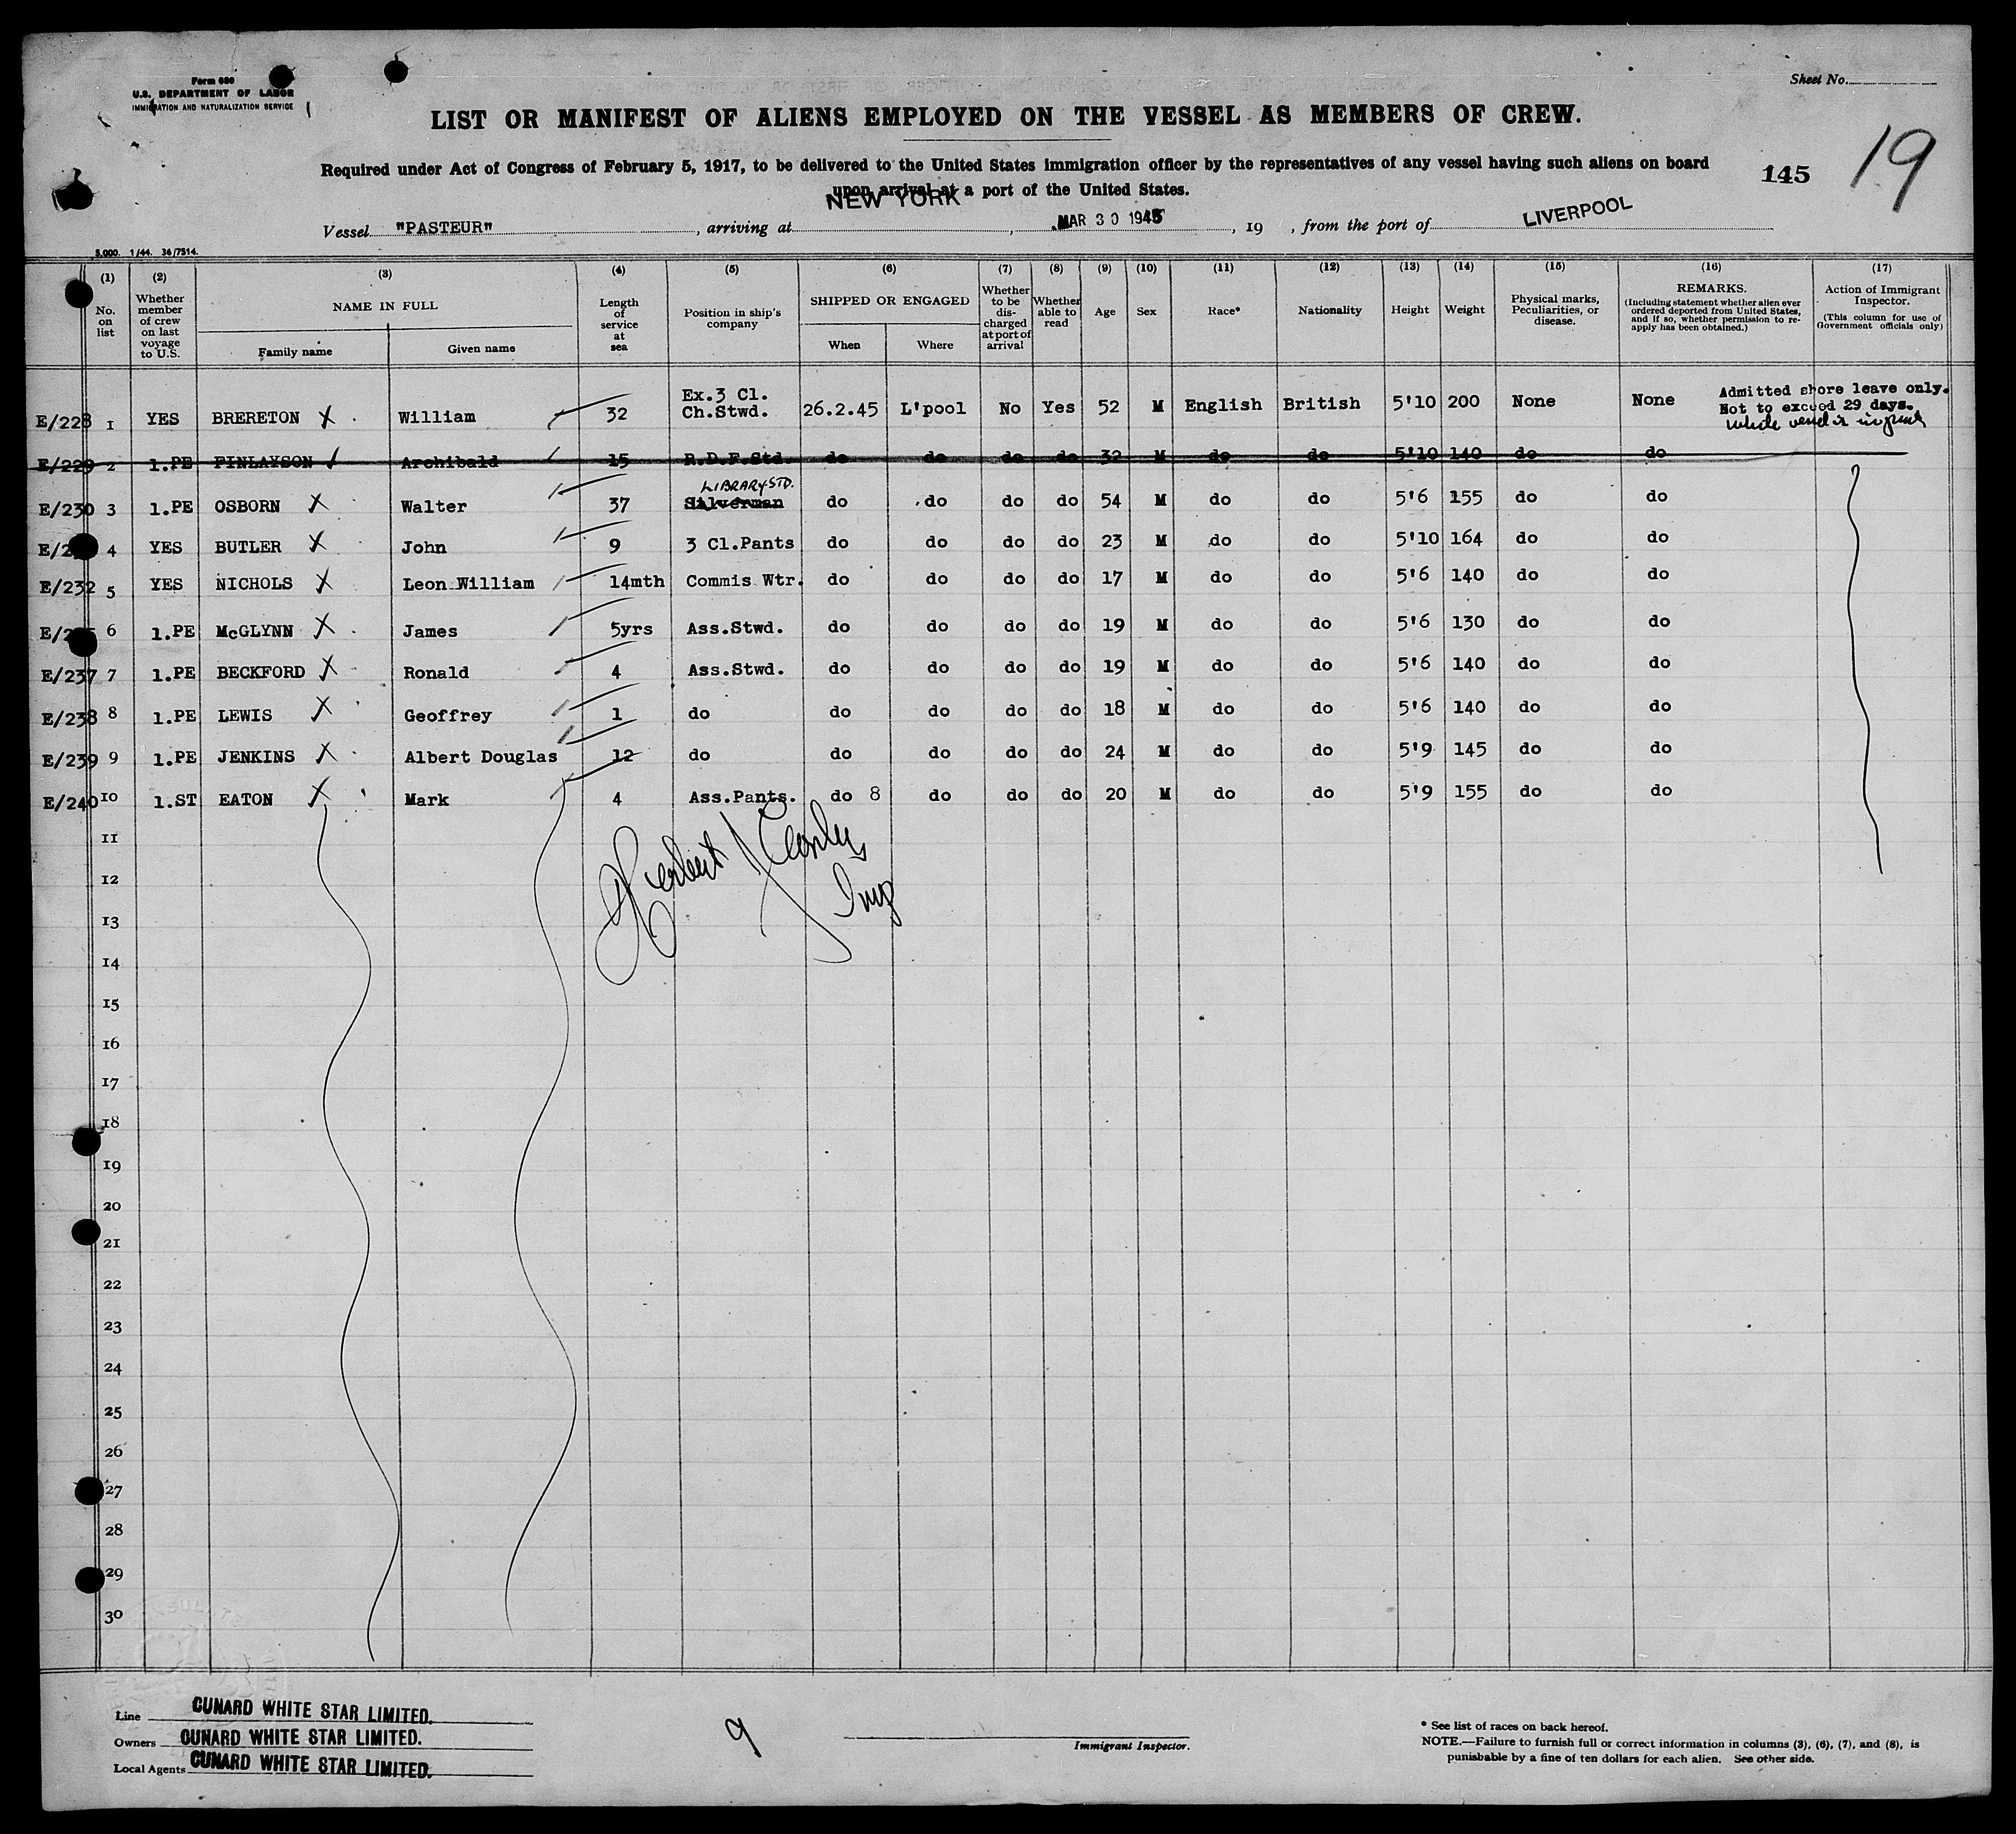 Form 680
U.S. DEPARTMENT OF LABOR
IMMIGRATION AND NATURALIZATION SERVICE
Sheet No.
LIST OR MANIFEST OF ALIENS EMPLOYED ON THE VESSEL AS MEMBERS OF CREW.
19
Required under Act of Congress of February 5, 1917, to be delivered to the United States immigration officer by the representatives of any vessel having such aliens on board
145
upon arrival at a port of the United States.
Vessel "PASTEUR", arriving at NEW YORK, MAR 30 1945, 19 , from the port of LIVERPOOL
5,000. 1/44. 36/7314.
(1) (2) (3) (4) (5) (6) (7) (8) (9) (10) (11) (12) (13) (14) (15) (16) (17)
No. on list
Whether member of crew on last voyage to U.S.
NAME IN FULL
Family name Given name
Length of service at sea
Position in ship's company
SHIPPED OR ENGAGED
When Where
Whether to be discharged at port of arrival
Whether able to read
Age
Sex
Race*
Nationality
Height
Weight
Physical marks, Peculiarities, or disease.
REMARKS.
(Including statement whether alien ever ordered deported from United States, and if so, whether permission to re-apply has been obtained.)
Action of Immigrant Inspector.
(This column for use of Government officials only)
E/228 1 YES BRERETON X William 32 Ex.3 Cl. Ch.Stwd. 26.2.45 L'pool No Yes 52 M English British 5'10 200 None None
Admitted shore leave only.
Not to exceed 29 days.
E/229 2 1.PE FINLAYSON Archibald 15 R.D.F.Std. do do do do 32 M do do 5'10 140 do do
LIBRARY STD.
E/230 3 1.PE OSBORN X Walter 37 Silverman do do do do 54 M do do 5'6 155 do do
4 YES BUTLER X John 9 3 Cl.Pants do do do do 23 M do do 5'10 164 do do
E/232 5 YES NICHOLS X Leon William 14mth Commis Wtr. do do do do 17 M do do 5'6 140 do do
6 1.PE McGLYNN X James 5yrs Ass.Stwd. do do do do 19 M do do 5'6 130 do do
E/237 7 1.PE BECKFORD X Ronald 4 Ass.Stwd. do do do do 19 M do do 5'6 140 do do
E/238 8 1.PE LEWIS X Geoffrey 1 do do do do do 18 M do do 5'6 140 do do
E/239 9 1.PE JENKINS X Albert Douglas 12 do do do do do 24 M do do 5'9 145 do do
E/240 10 1.ST EATON X Mark 4 Ass.Pants. do 8 do do do 20 M do do 5'9 155 do do
11
12
13
14
15
16
17
18
19
20
21
22
23
24
25
26
27
28
29
30
Line CUNARD WHITE STAR LIMITED.
Owners CUNARD WHITE STAR LIMITED.
Local Agents CUNARD WHITE STAR LIMITED.
9
Immigrant Inspector.
* See list of races on back hereof.
NOTE.—Failure to furnish full or correct information in columns (3), (6), (7), and (8), is
punishable by a fine of ten dollars for each alien. See other side.